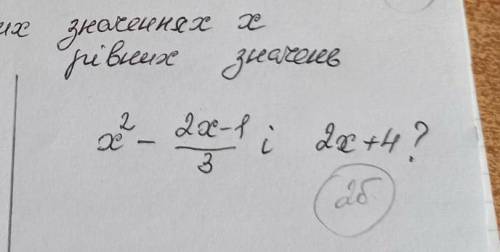 их значеннях x
рівних значень
x² - (2x-1)/3 і 2x+4?
2б